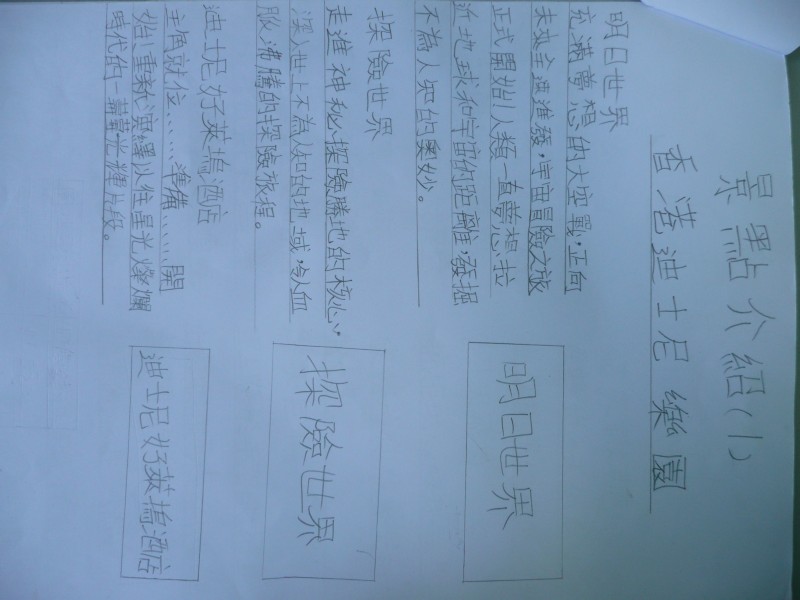 景點介紹(1)
香港迪士尼樂園
明日世界
充滿夢想的太空戰,正向
未來全速進發,宇宙冒險之旅
正式開始!人類一直夢想拉
近地球和宇宙的距離,發掘
不為人知的奧妙。
明日世界
探險世界
走進神秘探險勝地的核心,
深入世上不為人知的地域,令人血
脈沸騰的探險旅程。
探險世界
迪士尼好萊塢酒店
主角就位……準備……開
始!重新演繹以往星光燦爛
時代的一幕幕光輝片段。
迪士尼好萊塢酒店